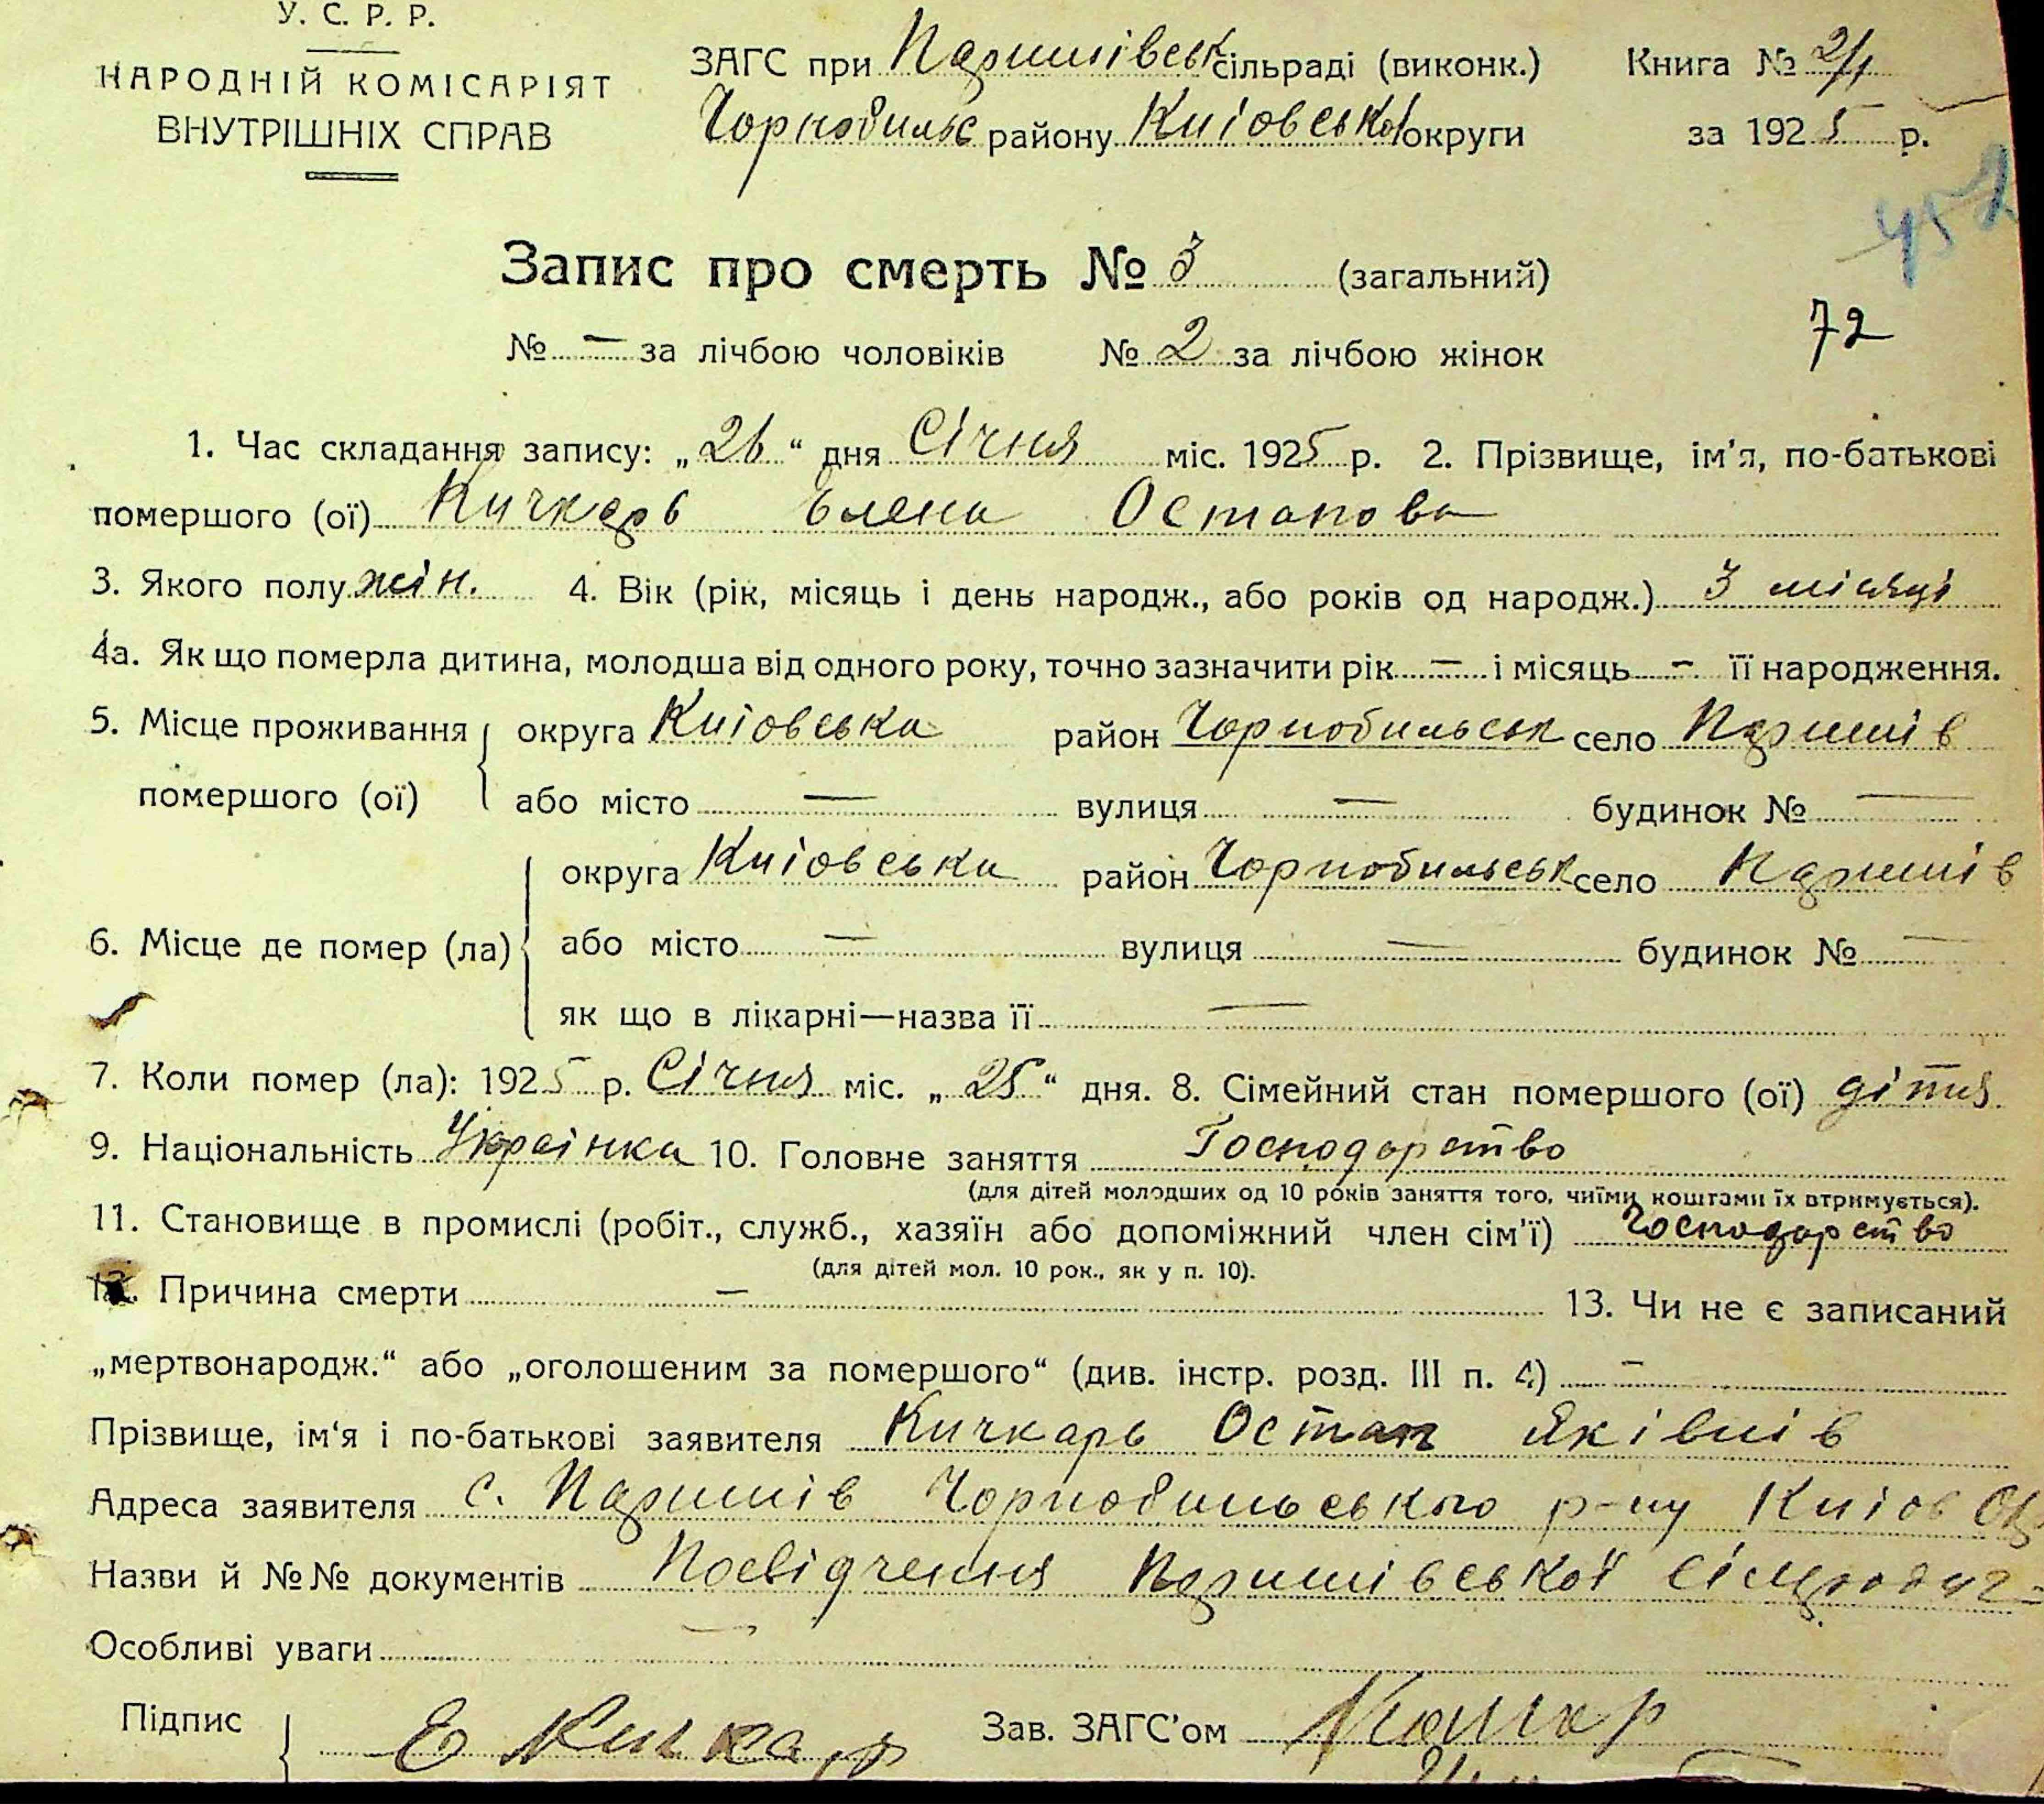 У. С. Р. Р.
НАРОДНІЙ КОМІСАРІЯТ
ВНУТРІШНІХ СПРАВ
ЗАГС при Паришівськ сільраді (виконк.) Книга № 2/1
Чорнобильс району Киівської округи за 1925 р.
452
Запис про смерть № 3 (загальний)
№ — за лічбою чоловіків № 2 за лічбою жінок
72
1. Час складання запису: „26“ дня Січня міс. 1925 р. 2. Прізвище, ім'я, по-батькові
помершого (ої) Кичкарь Елена Остапова
3. Якого полу жін. 4. Вік (рік, місяць і день народж., або років од народж.) 3 місяці
4а. Як що померла дитина, молодша від одного року, точно зазначити рік — і місяць — її народження.
5. Місце проживання округа Киівська район Чорнобильськ село Паришів
помершого (ої) або місто — вулиця — будинок № —
округа Киівська район Чорнобильськ село Паришів
6. Місце де помер (ла) або місто — вулиця — будинок № —
як що в лікарні—назва її —
7. Коли помер (ла): 1925 р. Січня міс. „25“ дня. 8. Сімейний стан помершого (ої) дітя
9. Національність Украінка 10. Головне заняття Господарство
(для дітей молодших од 10 років заняття того, чиїми коштами їх втримується).
11. Становище в промислі (робіт., служб., хазяїн або допоміжний член сім'ї) господарство
(для дітей мол. 10 рок., як у п. 10).
12. Причина смерти — 13. Чи не є записаний
„мертвонародж.“ або „оголошеним за помершого“ (див. інстр. розд. III п. 4) —
Прізвище, ім'я і по-батькові заявителя Кичкарь Остап Яківлів
Адреса заявителя с. Паришів Чорнобильського р-ну Киів
Назви й №№ документів Посвідчення Паришівської
Особливі уваги —
Підпис Е Кичкарь Зав. ЗАГС'ом